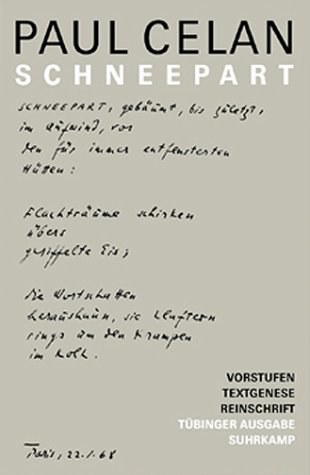 PAUL CELAN
SCHNEEPART
SCHNEEPART, gebäumt, bis zuletzt,
im Aufwind, vor
den für immer entfensterten
Hütten:
Flachträume schirken
übers
geriffelte Eis;
die Wortschatten
heraushaun, sie klaftern
rings um den Krampen
im Kolk.
Paris, 22.1.68
VORSTUFEN
TEXTGENESE
REINSCHRIFT
TÜBINGER AUSGABE
SUHRKAMP